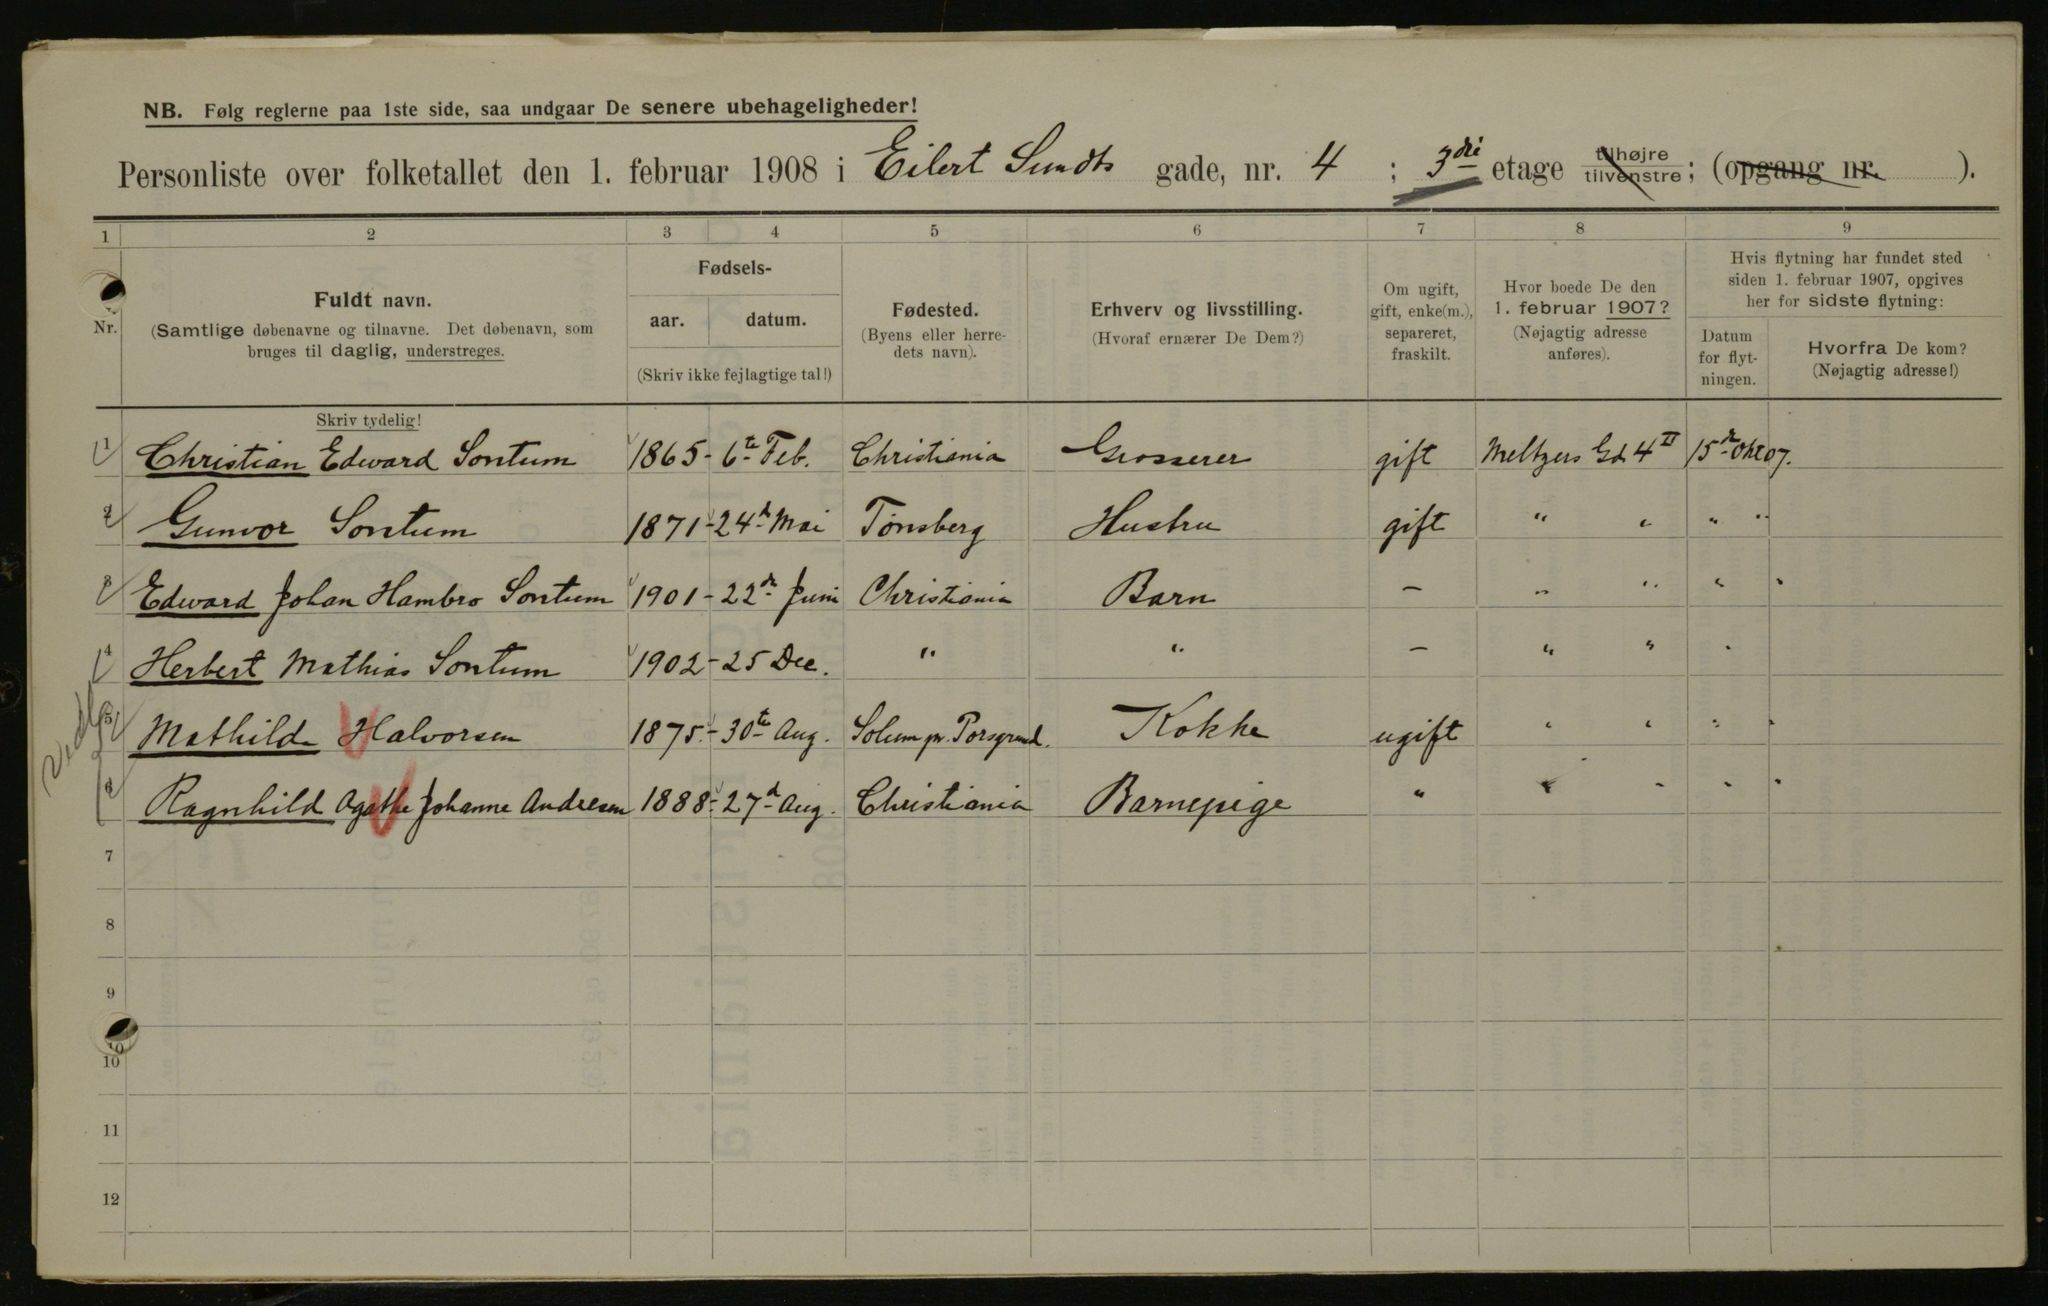 NB. Følg reglerne paa 1ste side, saa undgaar De senere ubehageligheder!
Personliste over folketallet den 1. februar 1908 i Eilert Sundts gade, nr. 4 ; 3die etage tilhøjre tilvenstre ; (opgang nr. ).
1 2 3 4 5 6 7 8 9
Nr.
Fuldt navn.
(Samtlige døbenavne og tilnavne. Det døbenavn, som
bruges til daglig, understreges.
Skriv tydelig!
Fødsels-
aar. datum.
(Skriv ikke fejlagtige tal!)
Fødested.
(Byens eller herre-
dets navn).
Erhverv og livsstilling.
(Hvoraf ernærer De Dem?)
Om ugift,
gift, enke(m.),
separeret,
fraskilt.
Hvor boede De den
1. februar 1907?
(Nøjagtig adresse
anføres).
Hvis flytning har fundet sted
siden 1. februar 1907, opgives
her for sidste flytning:
Datum
for flyt-
ningen.
Hvorfra De kom?
(Nøjagtig adresse!)
1 Christian Edward Sontum 1865 - 6te Feb. Christiania Grosserer gift Meltzers Gd 4 II 15de Okt 07.
2 Gunvor Sontum 1871 - 24d Mai Tønsberg Hustru gift " " " "
3 Edward Johan Hambro Sontum 1901 - 22de Juni Christiania Barn - " " " "
4 Herbert Mathias Sontum 1902 - 25 Dec. " " - " " "
5 Mathilde Halvorsen 1875. - 30te Aug. Solum pr. Porsgrund. Kokke ugift " " " "
6 Ragnhild Agathe Johanne Andresen 1888 - 27d Aug. Christiania Barnepige " " " " "
7
8
9
10
10
11
12